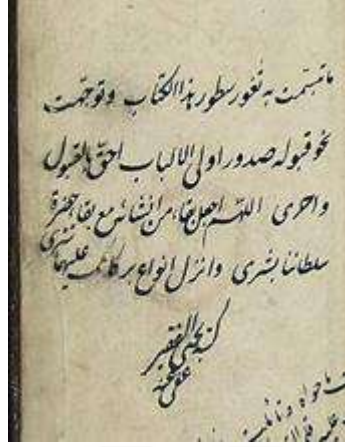 ما تبسمت به ثغور سطور هذا الكتاب وتوجهت
نحو قبوله صدور اولى الالباب احق بالقبول
واحرى اللهم اجعل بقاء من انشائه مع بقاء حضرة
سلطاننا بشرى وانزل انواع بركاتك عليهما تترى
كتبه يحيى الفقير
عفى عنه